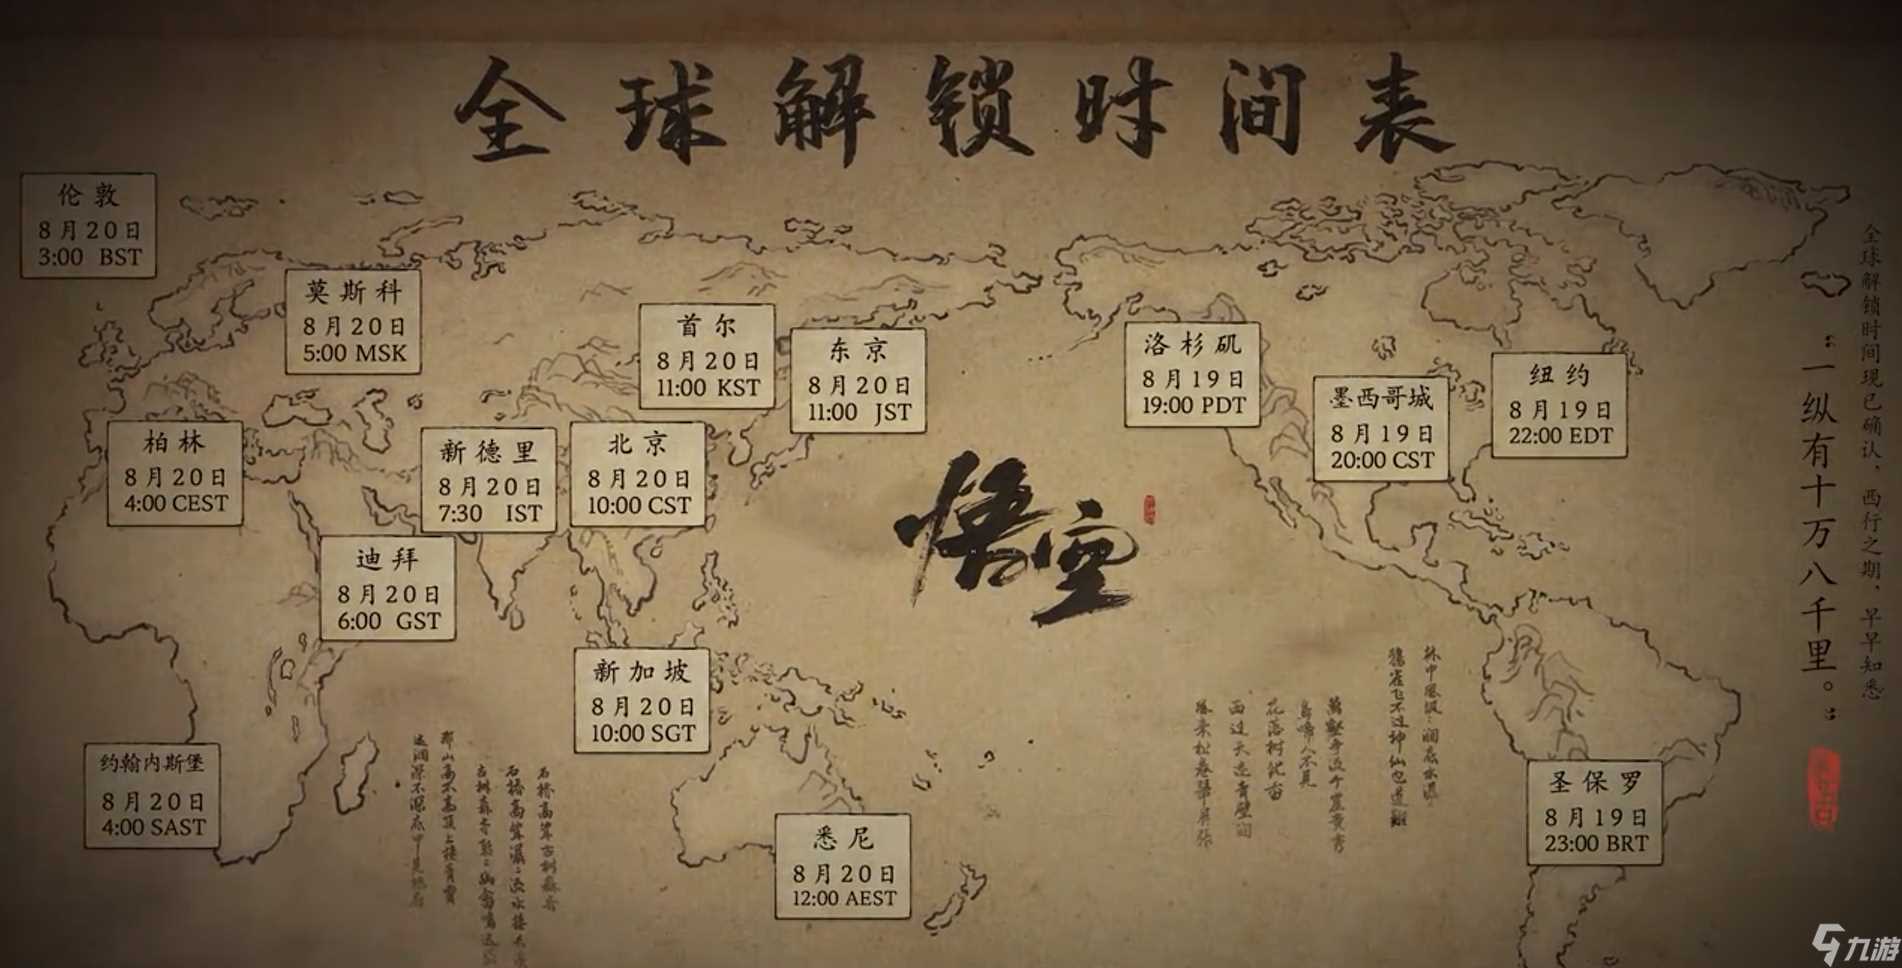 全球解锁时间表
伦敦
8月20日
3:00 BST
莫斯科
8月20日
5:00 MSK
首尔
8月20日
11:00 KST
东京
8月20日
11:00 JST
洛杉矶
8月19日
19:00 PDT
墨西哥城
8月19日
20:00 CST
纽约
8月19日
22:00 EDT
柏林
8月20日
4:00 CEST
新德里
8月20日
7:30 IST
北京
8月20日
10:00 CST
迪拜
8月20日
6:00 GST
新加坡
8月20日
10:00 SGT
约翰内斯堡
8月20日
4:00 SAST
悉尼
8月20日
12:00 AEST
圣保罗
8月19日
23:00 BRT
悟空
全球解锁时间现已确认，西行之期，早早知悉
“一纵有十万八千里。”
九游